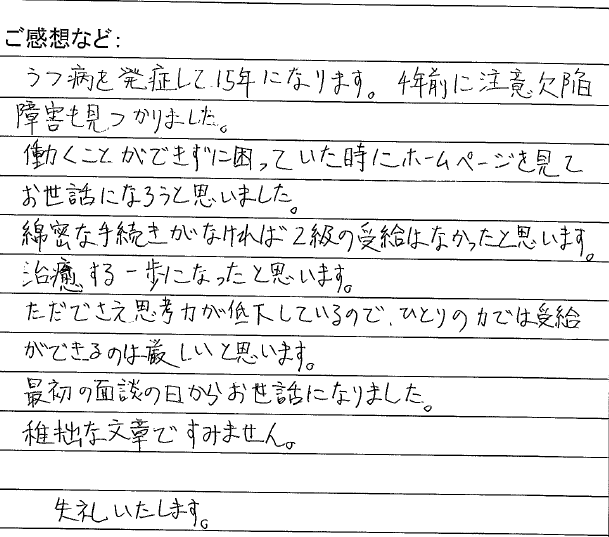 ご感想など：
うつ病を発症して15年になります。4年前に注意欠陥
障害も見つかりました。
働くことができずに困っていた時にホームページを見て
お世話になろうと思いました。
綿密な手続きがなければ2級の受給はなかったと思います。
治癒する一歩になったと思います。
ただでさえ思考力が低下しているので、ひとりの力では受給
ができるのは厳しいと思います。
最初の面談の日からお世話になりました。
稚拙な文章ですみません。
失礼いたします。